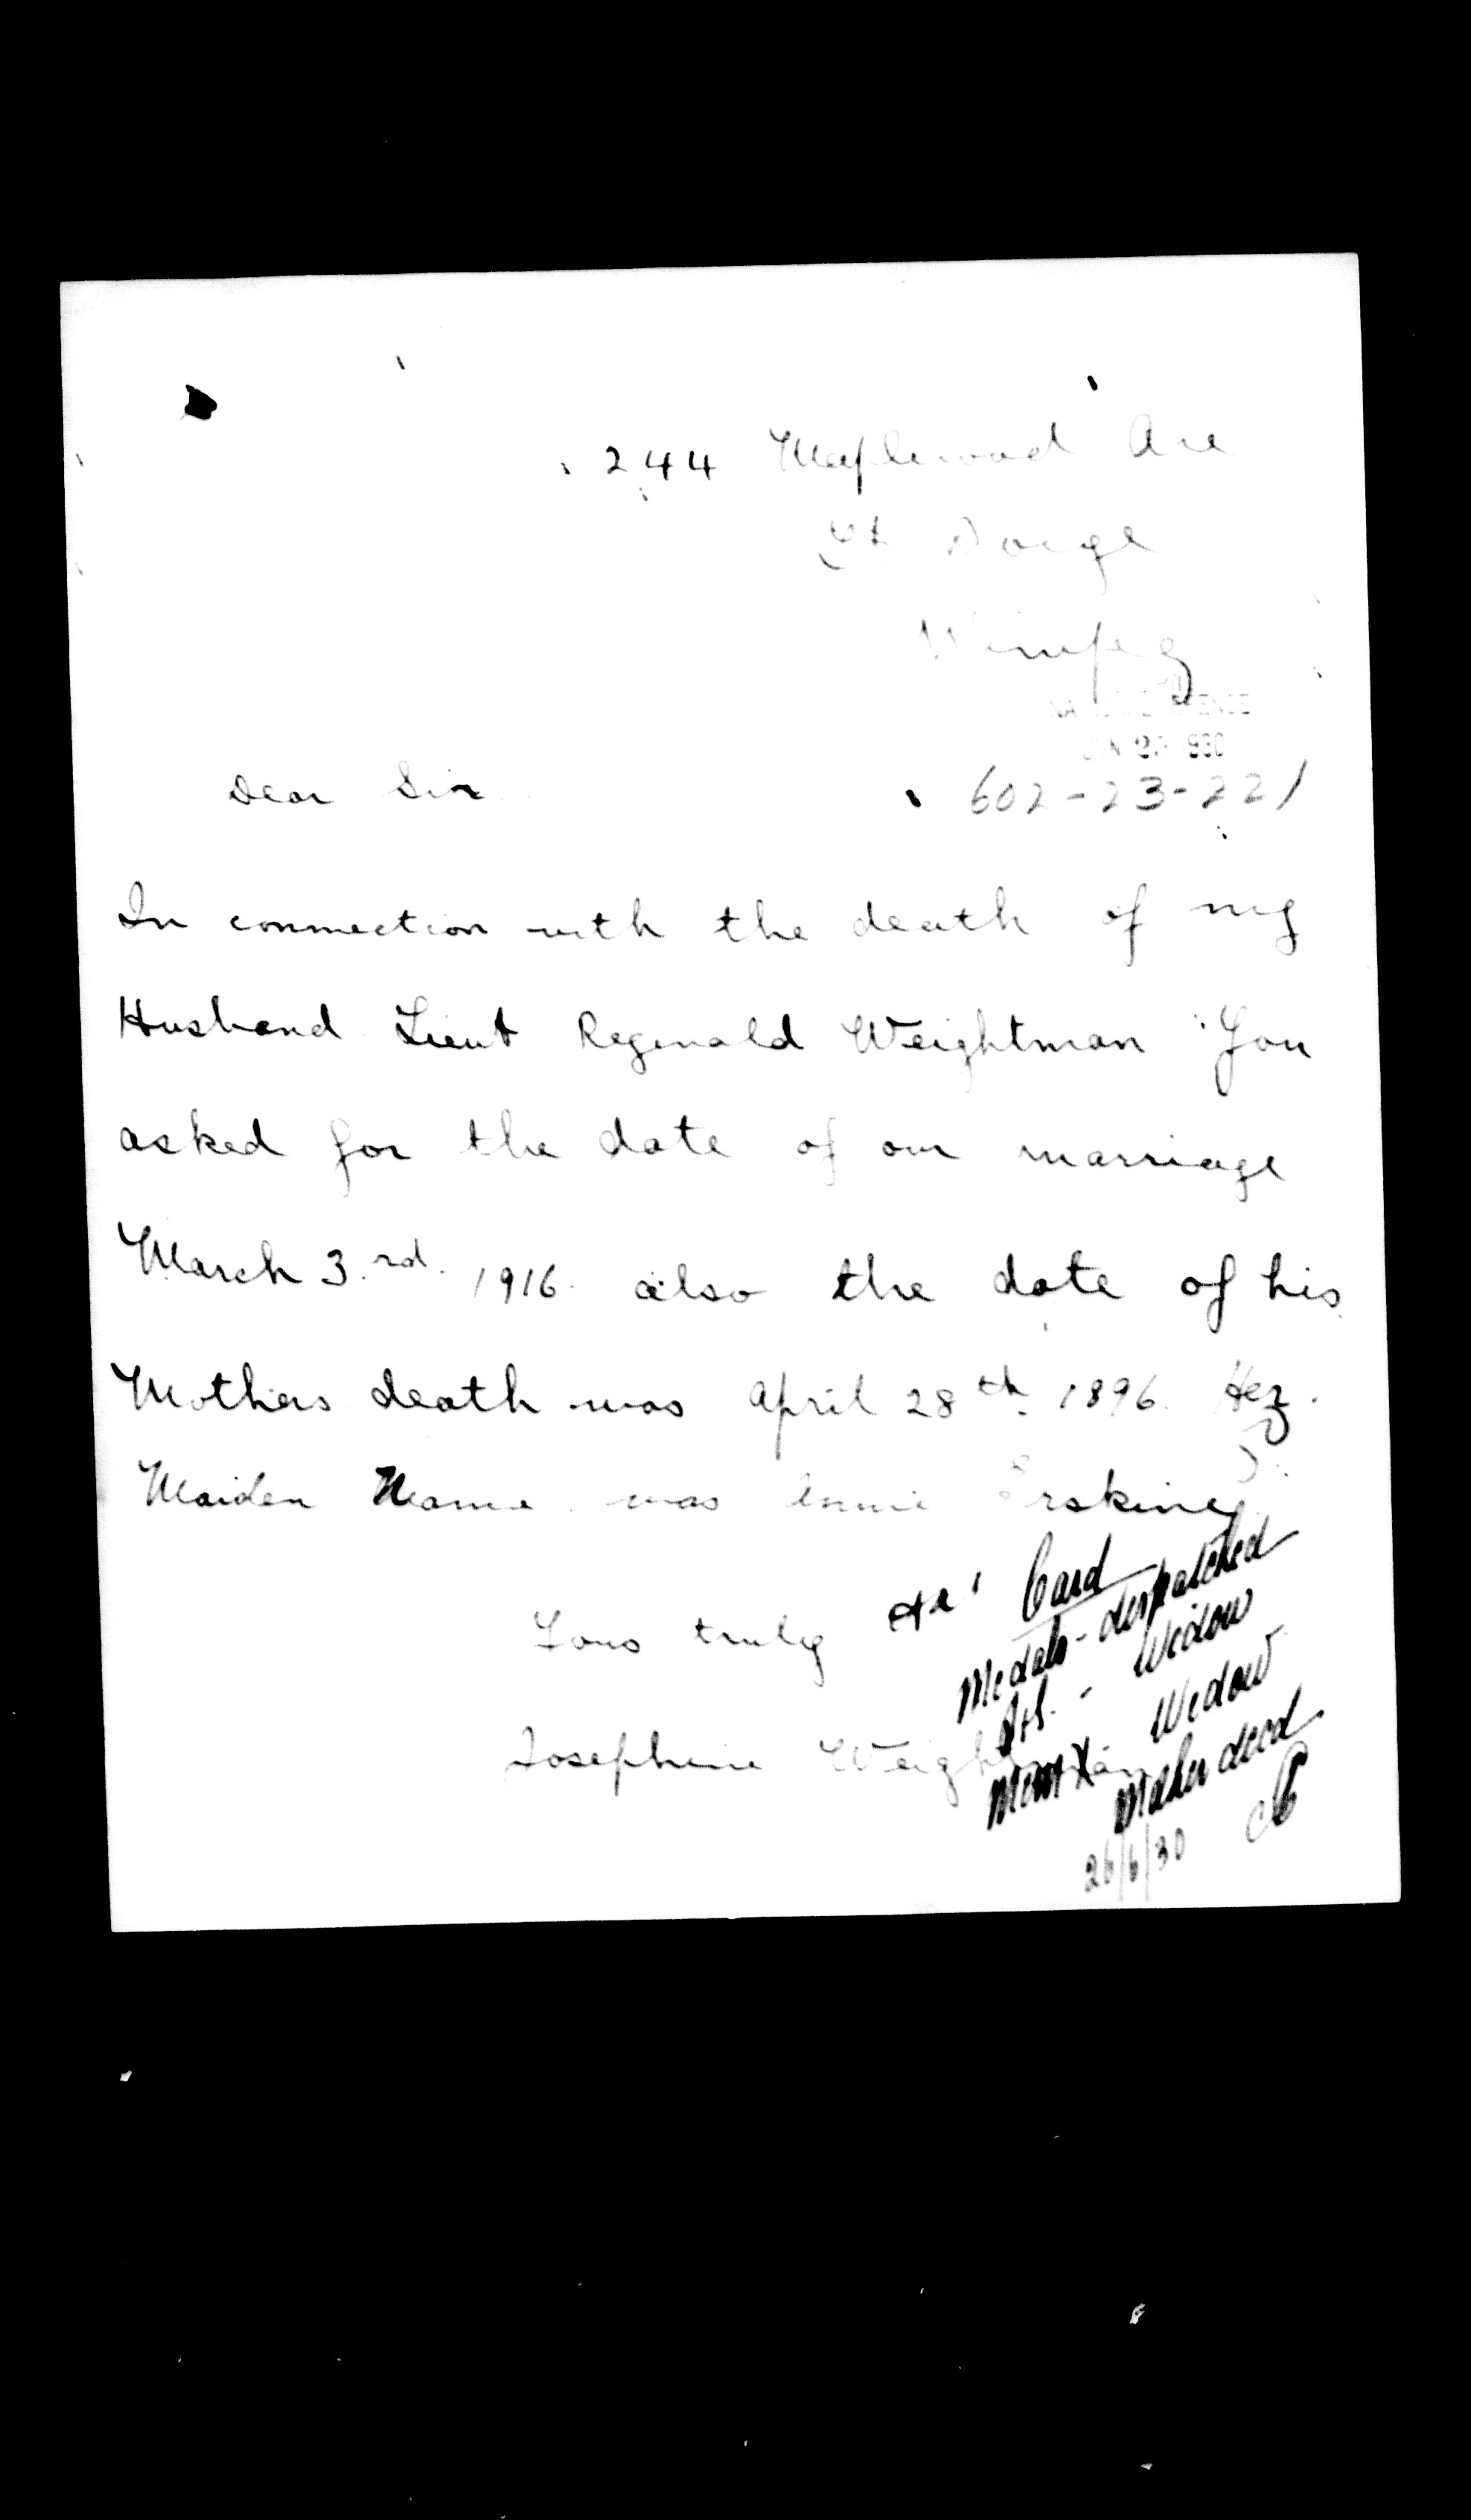 244 Maplewood Ave
Winnipeg
602-23-221
Dear Sir
In connection with the death of my
Husband Lieut Reginald Weightman You
asked for the date of our marriage
March 3rd. 1916. also the date of his
Mothers death was April 28th. 1896. Her
Maiden Name was Erskine
Yours truly
Josephine Weightman
Card
Medals - despatched
Widow
Widow
Mother dead
26/6/30